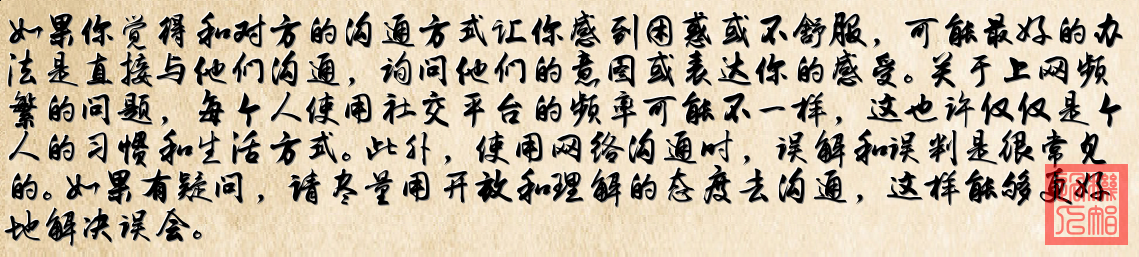 如果你觉得和对方的沟通方式让你感到困惑或不舒服，可能最好的办
法是直接与他们沟通，询问他们的意图或表达你的感受。关于上网频
繁的问题，每个人使用社交平台的频率可能不一样，这也许仅仅是个
人的习惯和生活方式。此外，使用网络沟通时，误解和误判是很常见
的。如果有疑问，请尽量用开放和理解的态度去沟通，这样能够更好
地解决误会。